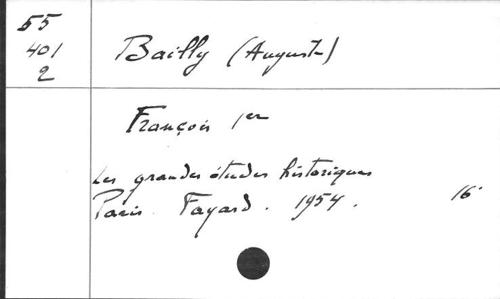 55
401
2
Bailly (Auguste)
François 1er
Les grandes études historiques
Paris. Fayard. 1954. 16°